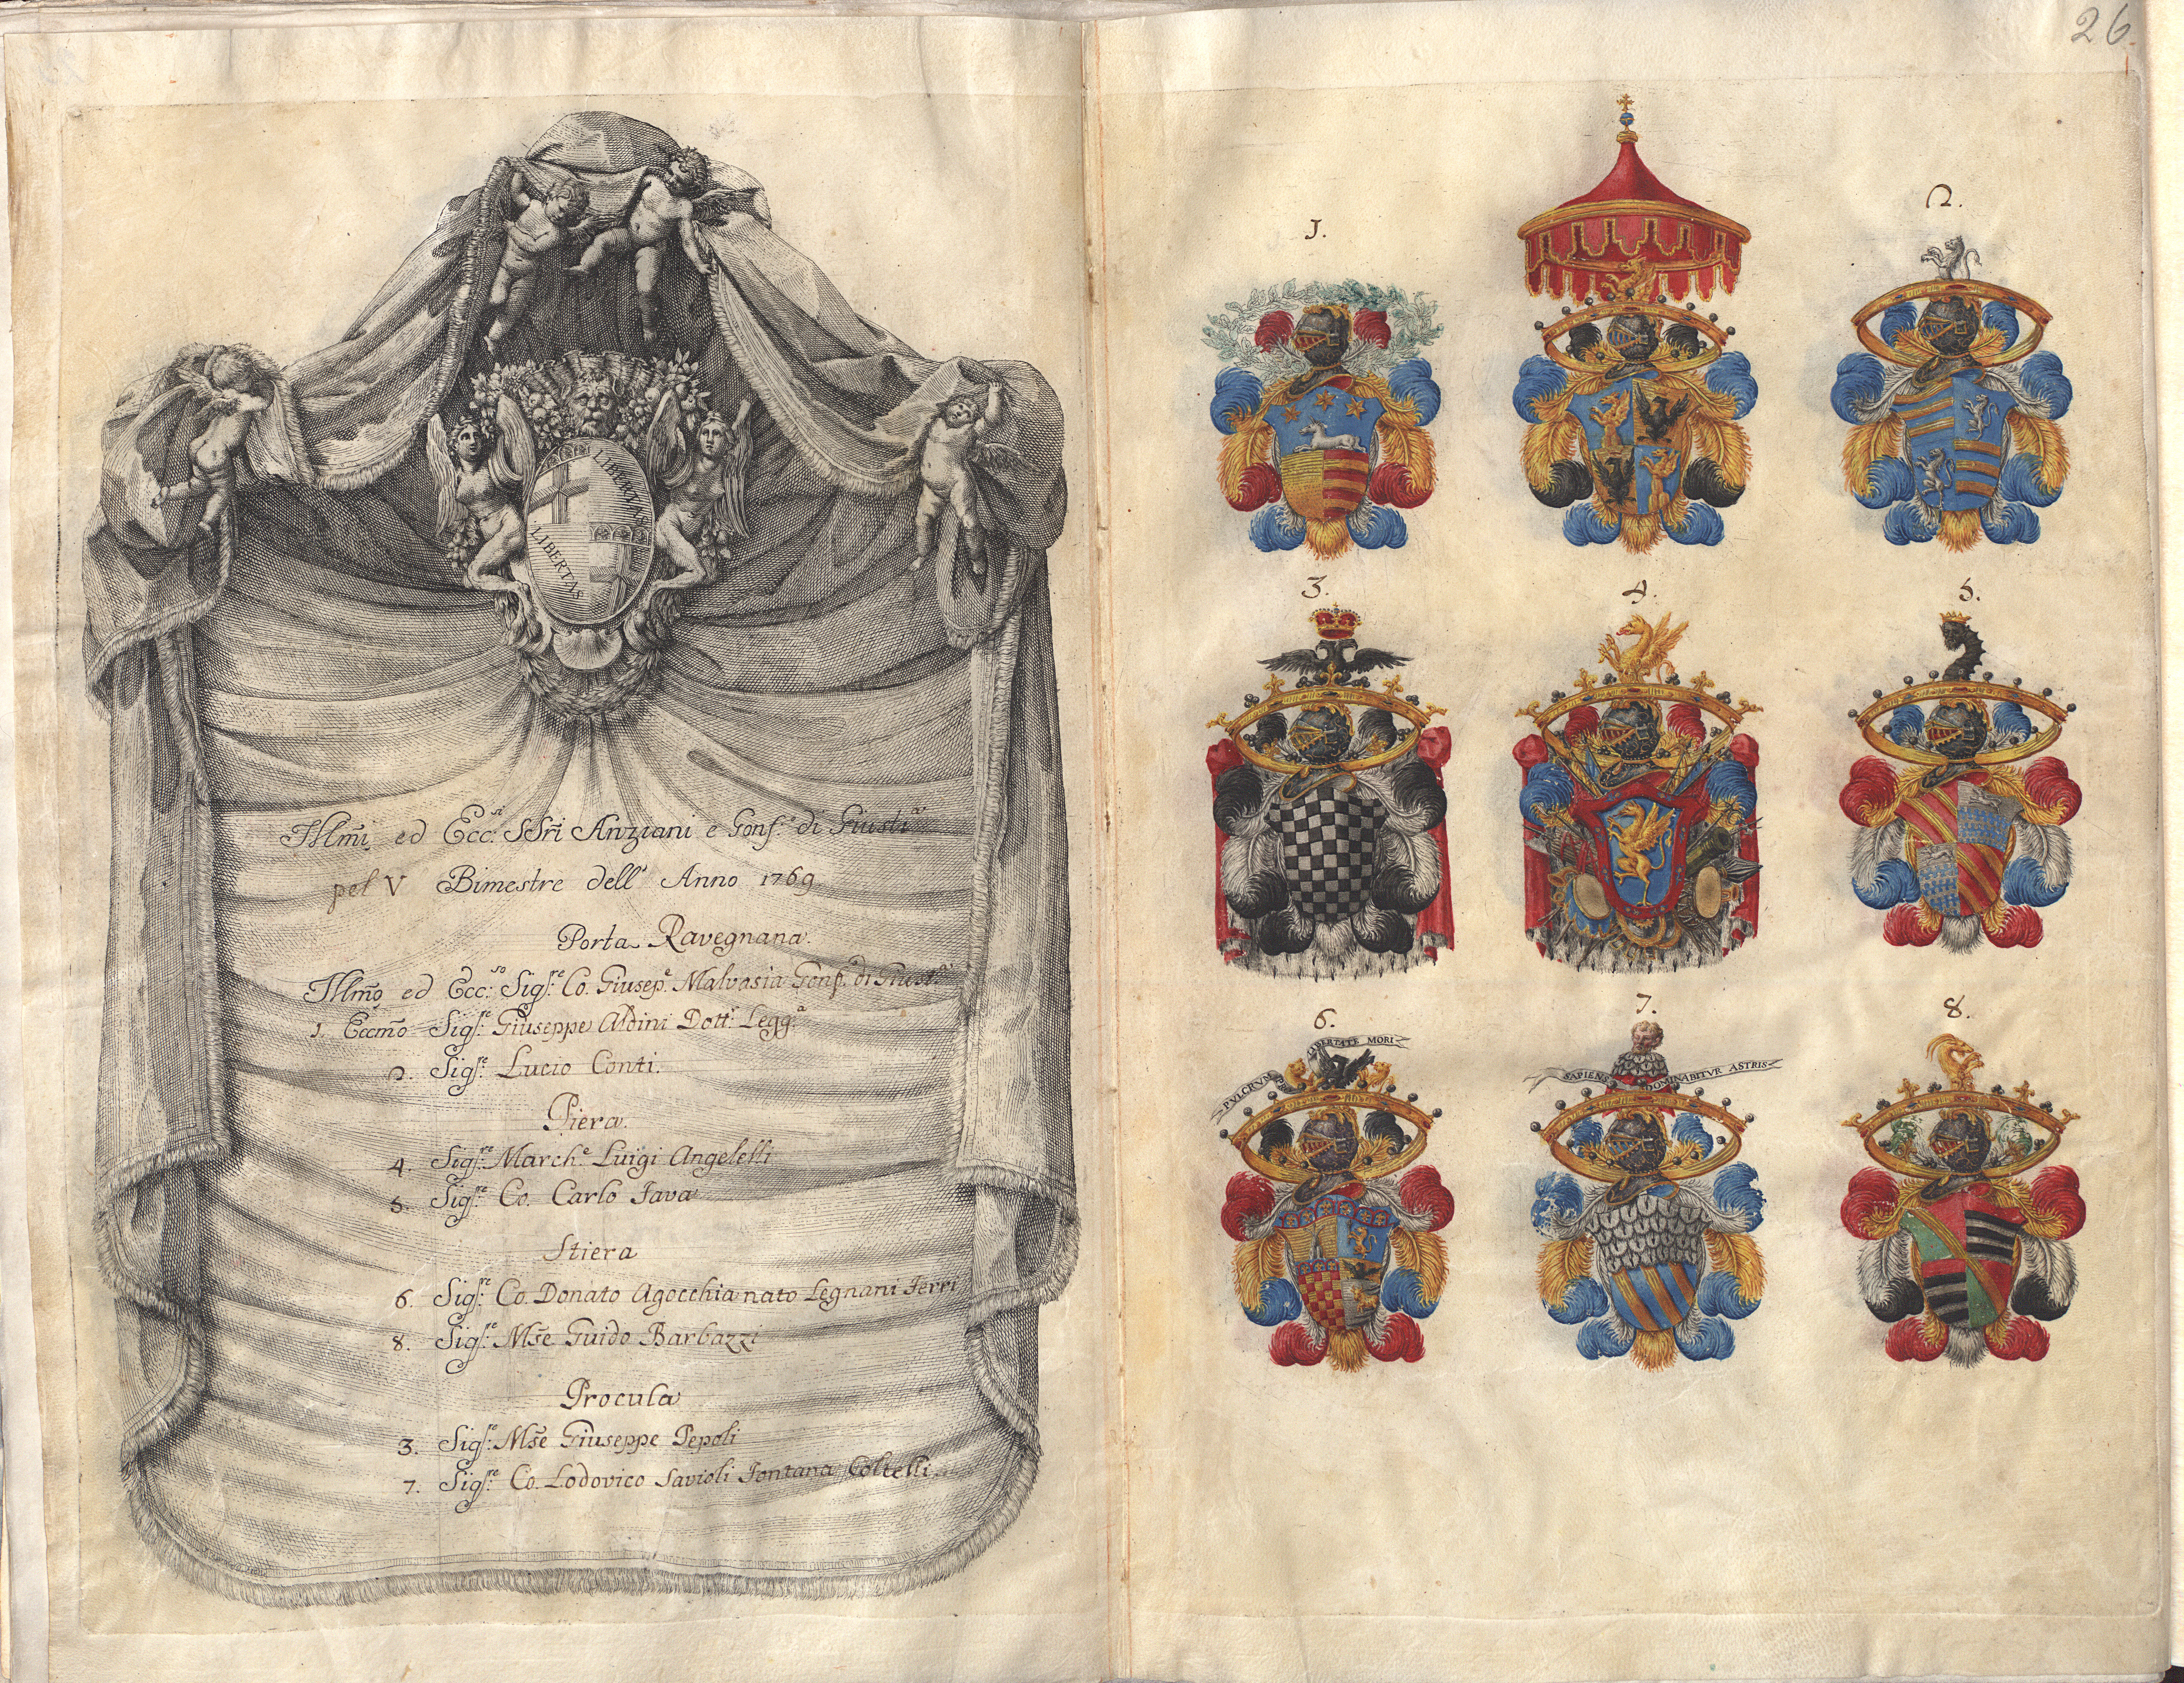 26
LIBERTAS
LIBERTAS
Illm̃i ed Ecc:si SSr̃i Anziani e Gonf.e di Giusti.a
pel V Bimestre dell' Anno 1769
Porta Ravegnana.
Illm̃o ed Ecc:so Sig.re Co. Giusep.e Malvasia Gonf.e di Giust.a
1. Eccm̃o Sig.re Giuseppe Aldini Dott.r Legg.a
2. Sig.re Lucio Conti.
Piera.
4. Sig.re March.e Luigi Angelelli
5. Sig.re Co. Carlo Fava
Stiera
6. Sig.re Co. Donato Agocchia nato Legnani Ferri
8. Sig.re Mſe Guido Barbazzi
Procula
3. Sig.re Mſe Giuseppe Pepoli
7. Sig.re Co. Lodovico Savioli Fontana Coltelli.
1.
2.
3.
4.
5.
6.
PVLCRVM PRO LIBERTATE MORI
7.
SAPIENS DOMINABITVR ASTRIS
8.